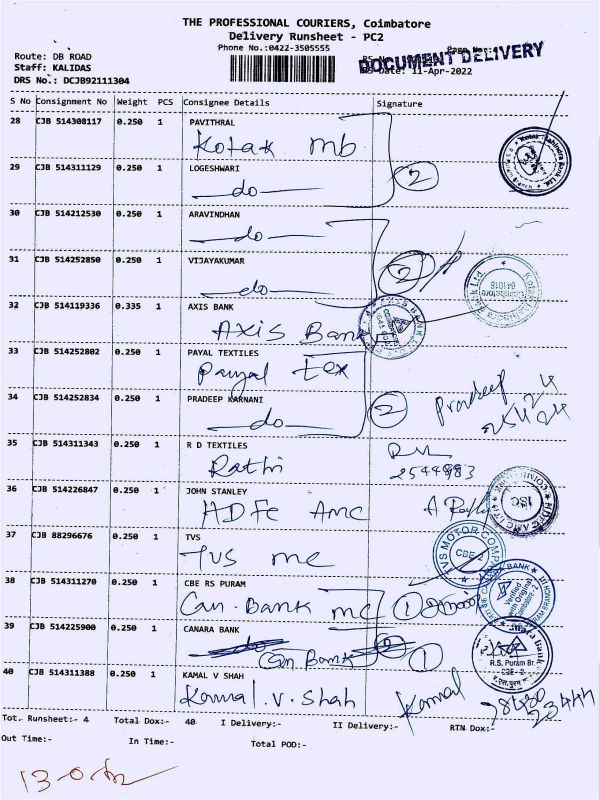 THE PROFESSIONAL COURIERS, Coimbatore
Delivery Runsheet - PC2
Phone No.:0422-3505555
Route: DB ROAD
Staff: KALIDAS
DRS No.: DCJB92111304
DOCUMENT DELIVERY
Date: 11-Apr-2022
S No Consignment No Weight PCS Consignee Details Signature
28 CJB 514308117 0.250 1 PAVITHRAL
Kotak mb
29 CJB 514311129 0.250 1 LOGESHWARI
do
2
30 CJB 514212530 0.250 1 ARAVINDHAN
do
31 CJB 514252850 0.250 1 VIJAYAKUMAR
do
2
32 CJB 514119336 0.335 1 AXIS BANK
Axis Bank
33 CJB 514252802 0.250 1 PAYAL TEXTILES
Payal tex
34 CJB 514252834 0.250 1 PRADEEP KARNANI
do
2
Pradeep
35 CJB 514311343 0.250 1 R D TEXTILES
Rathi
2544883
36 CJB 514226847 0.250 1 JOHN STANLEY
HDFC AMC
37 CJB 88296676 0.250 1 TVS
TVS mc
TVS MOTOR COMP
CBE-2
38 CJB 514311270 0.250 1 CBE RS PURAM
Can. Bank mc
1
39 CJB 514225900 0.250 1 CANARA BANK
Can Bank
1
R.S. Puram Br.
CBE-2
40 CJB 514311388 0.250 1 KAMAL V SHAH
Kamal. V. Shah
Kamal
Tot. Runsheet:- 4 Total Dox:- 40 I Delivery:- II Delivery:- RTN Dox:-
Out Time:- In Time:- Total POD:-